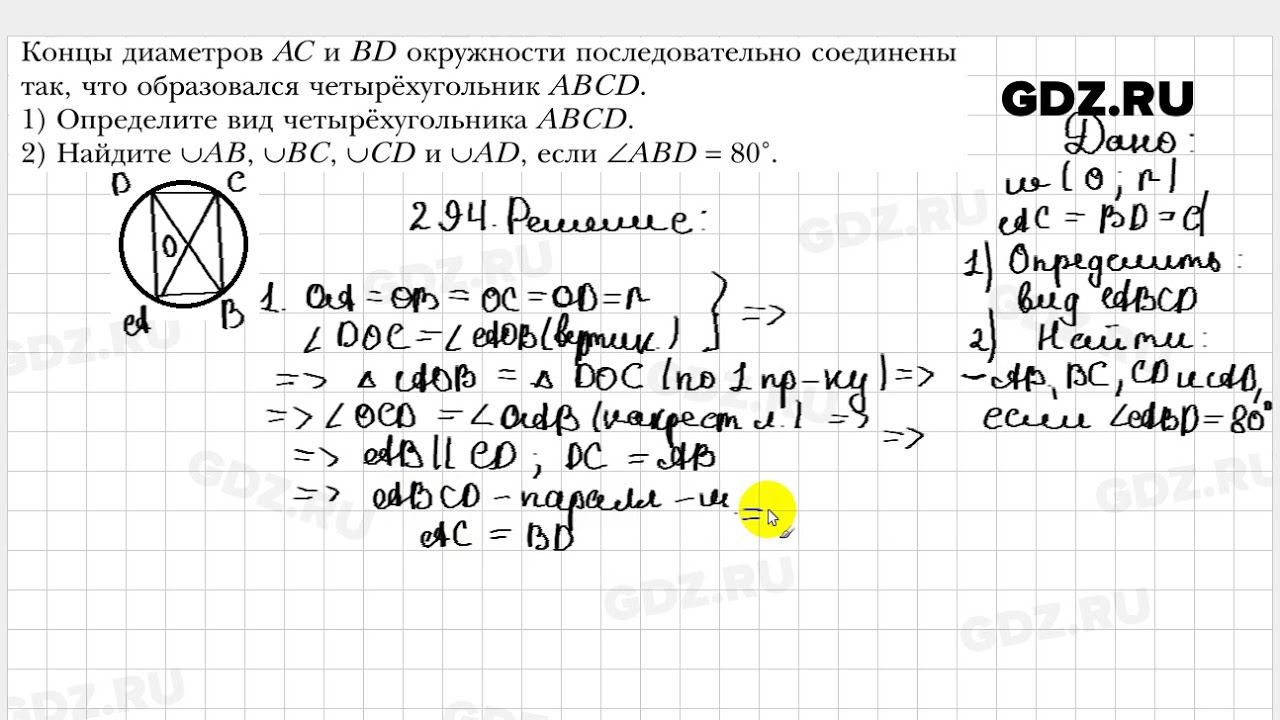 Концы диаметров AC и BD окружности последовательно соединены
так, что образовался четырёхугольник ABCD.
1) Определите вид четырёхугольника ABCD.
2) Найдите ∪AB, ∪BC, ∪CD и ∪AD, если ∠ABD = 80°.
GDZ.RU
Дано:
(O; r)
AC = BD = d
1) Определить:
вид ABCD
2) Найти:
AB, BC, CD и AD,
если ∠ABD = 80°
D C
O
A B
294. Решение:
1. OA = OB = OC = OD = r
∠DOC = ∠AOB (вертик.) } =>
=> △ AOB = △ DOC (по 1 пр-ку) =>
=> ∠OCD = ∠OAB (накрест л.) => =>
=> AB || CD ; DC = AB
=> ABCD - паралл-м. =
AC = BD
GDZ.RU
GDZ.RU
GDZ.RU
GDZ.RU
GDZ.RU
GDZ.RU
GDZ.RU
GDZ.RU